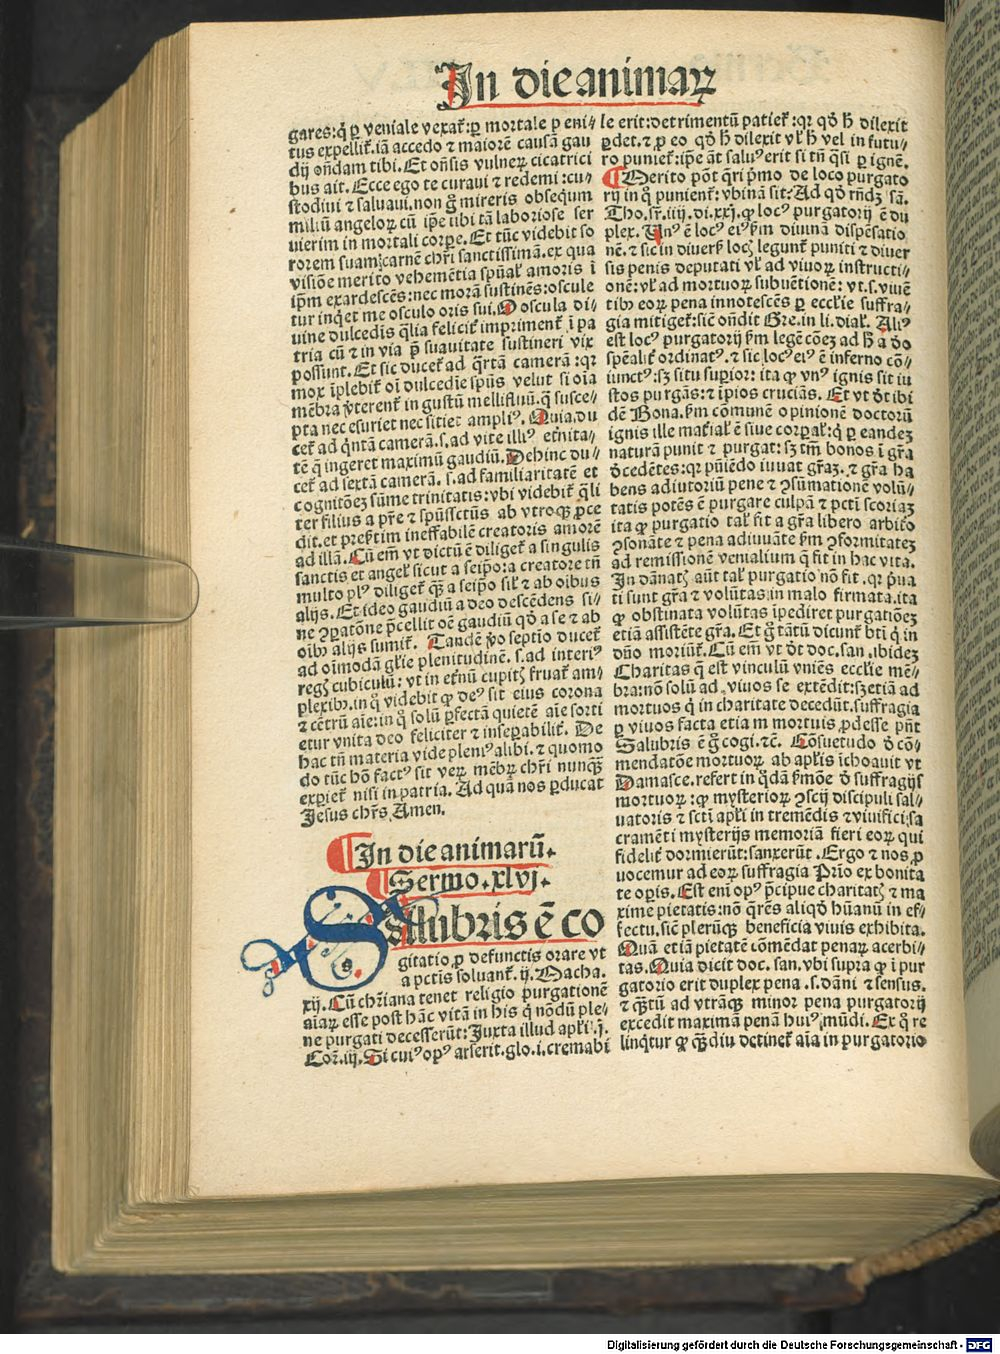 In die animaꝝ
gares: q̇ ꝑ veniale vexat̄: ꝑ mortale peni-
tus expellit̄. iā accedo ⁊ maiorē causā gau
dij on̄dam tibi. Et on̄sis vulneꝝ cicatrici
bus ait. Ecce ego te curaui ⁊ redemi: cu-
stodiui ⁊ saluaui. non g̊ mireris obsequm
miliū angeloꝝ cū ip̄e tibi tā laboriose ser
uierim in mortali corpe. Et tūc videbit so
rorem suam: carnē chr̄i sanctissimā. ex qua
visiōe merito vehemētia spūal̄ amoris ī
ip̄m exardescēs: nec morā sustinēs: oscule
tur inq̇et me osculo oris sui. O oscula di-
uine dulcedis q̄lia feliciter̄ impriment̄ ī pa
tria cū ⁊ in via p̄ suauitate sustineri vix
possunt. Et sic ducet̄ ad q̄rtā camerā: qꝛ
mox īplebit̄ oī dulcedīe spūs velut si oīa
mēbra v̓terent̄ in gustū mellifluū. q̄ susce-
pta nec esuriet nec sitiet ampliꝰ. Quia. du
cet̄ ad q̇ntā camerā. s. ad vite illiꝰ et̓nita-
tē q̄ ingeret maximū gaudiū. Dehinc du-
cet̄ ad sextā camerā. s. ad familiaritatē et
cognitōeꝫ sūme trinitatis: vbi videbit̄ q̄li
ter filius a pr̄e ⁊ spūssctūs ab vtroqꝫ ꝓce
dit. et presertim ineffabilē creatoris amorē
ad illā. Cū em̄ vt dictū ē diliget̄ a singulis
sanctis et angel̄ sicut a seip̄o: a creatore tn̄
multo plꝰ diliget̄ q̄ꝫ a seip̄o sil̄ ⁊ ab oībus
alijs. Et ideo gaudiū a deo descēdens si-
ne ꝯpatōne p̄cellit oē gaudiū qd̊ a se ⁊ ab
oībꝫ alijs sumit̄. Tandē v̊o septio ducet̄
ad oīmodā gl̄ie plenitudinē. s. ad interiꝰ
regꝫ cubiculū: vt in et̓nū cupitꝫ fruat̄ am-
plexibꝫ. in q̊ videbit ꝙ deꝰ sit eius corona
⁊ cētrū aīe: in q̊ solū ꝑfectā quietē aīe sorti
etur vnita deo feliciter ⁊ inseꝑabilit̄. De
hac tn̄ materia vide pleniꝰ alibi. ⁊ quomo
do tūc hō factꝰ sit veꝝ mēbꝝ chr̄i nunqꝫ
expiet̄ nisi in patria. Ad quā nos ꝑducat
Jesus chr̄s. Amen.
¶ In die animarū.
¶ Sermo. xlvj.
Salubris ē co
gitatio ꝓ defunctis orare vt
a pctīs soluant̄. ij. Macha.
xij. Cū chr̄iana tenet religio purgationē
aīaꝝ esse post hāc vitā in his q̇ nōdū ple-
ne purgati decesserūt: Juxta illud apl̄i. j.
Coꝝ. iij. Si cuiꝰ opꝰ arserit. glo. i. cremabi
le erit: detrimentū patiet̄: qꝛ qd̊ ꝧ dilexit
ꝑdet. ⁊ ꝓ eo qd̊ ꝧ dilexit vl̄ ꝧ vel in futu-
ro puniet̄: ip̄e āt saluꝰ erit si tn̄ q̄si ꝑ ignē.
¶ Merito pōt q̄ri p̓mo de loco purgato
rij in q̊ punient̄: vbinā sit: Ad qd̊ rn̄deꝫ sā.
Tho. sr̄. iiij. di. xxj. ꝙ locꝰ purgatorij ē du
plex. Vnꝰ ē locꝰ eiꝰ ẜm diuinā dispēsatio
nē. ⁊ sic in diuers̄ locꝫ legunt̄ puniti ⁊ diuer
sis penis deputati vl̄ ad viuoꝝ instructi-
onē: vl̄ ad mortuoꝝ subuētionē: vt. s. viuē
tibꝫ eoꝝ pena innotescēs ꝑ eccl̄ie suffra-
gia mitiget̄: sic̄ on̄dit Gre. in li. dial̄. Aliꝰ
est locꝰ purgatorij ẜm legē cōeꝫ ad ꝧ a d̊o
spēalit̄ ordinatꝰ. ⁊ sic locꝰ eiꝰ ē inferno cō-
iunctꝰ: sꝫ situ supior: ita ꝙ vnꝰ ignis sit iu
stos purgās: ⁊ īpios cruciās. Et vt d̓t ibi
dē Bona. ẜm cōmunē opinionē doctorū
ignis ille mat̓ial̄ ē siue corꝑal̄: q̇ ꝑ eandeꝫ
naturā punit ⁊ purgat: sꝫ tm̄ bonos ī gr̄a
d̓cedētes: qꝛ puīēdo iuuat gr̄aꝫ. ⁊ gr̄a ha
bens adiutoriū pene ⁊ ꝯsūmationē volū-
tatis potēs ē purgare culpā ⁊ pctī scoriaꝫ
ita ꝙ purgatio tal̄ fit a gr̄a libero arbit̊o
ꝯsonāte ⁊ pena adiuuāte ẜm ꝯformitateꝫ
ad remissionē venialium q̄ fit in hac vita.
In dānatꝫ aūt tal̄ purgatio nō fit. qꝛ p̓ua
ti sunt gr̄a ⁊ volūtas in malo firmata. ita
ꝙ obstinata volūtas īpediret purgatiōeꝫ
etiā assistēte gr̄a. Et g̊ tātū dicunt̄ btī q̇ in
dn̄o moriūt̄. Cū em̄ vt d̓t doc. san. ibideꝫ
Charitas q̄ est vinculū vniēs eccl̄ie mē-
bra: nō solū ad viuos se extēdit: sꝫ etiā ad
mortuos q̇ in charitate decedūt. suffragia
ꝑ viuos facta etiam mortuis ꝓdesse pn̄t
Salubris ē g̊ cogi. ⁊c̄. Cōsuetudo d̓ cō-
mendatōe mortuoꝝ ab apl̄is īchoauit vt
Damasce. refert in q̊dā ẜmōe d̓ suffragijs
mortuoꝝ: ꝙ mysterioꝝ ꝯscij discipuli sal-
uatoris ⁊ sctī apl̄i in tremēdis ⁊ viuifici; sa
cramēti mysterijs memoriā fieri eoꝝ qui
fidelit̄ dormierūt: sanxerūt. Ergo ⁊ nos ꝓ
uocemur ad eoꝝ suffragia P̓io ex bonita
te oꝑis. Est eni opꝰ p̄cipue charitatꝫ ⁊ ma
xime pietatis: nō q̄rēs aliqd̊ hūanū in ef-
fectu. sic̄ plerūqꝫ beneficia viuis exhibita.
Quā etiā pietatē cōmēdat penaꝝ acerbi-
tas. Quia dicit doc. san. vbi supra ꝙ ī pur
gatorio erit duplex pena. s. dāni ⁊ sensus.
⁊ q̄ꝫtū ad vtrāqꝫ minor pena purgatorij
excedit maximā penā huiꝰ mūdi. Ex q̊ re
linq̇tur ꝙ q̄ꝫdiu detinet̄ aīa in purgatorio
Digitalisierung gefördert durch die Deutsche Forschungsgemeinschaft - DFG